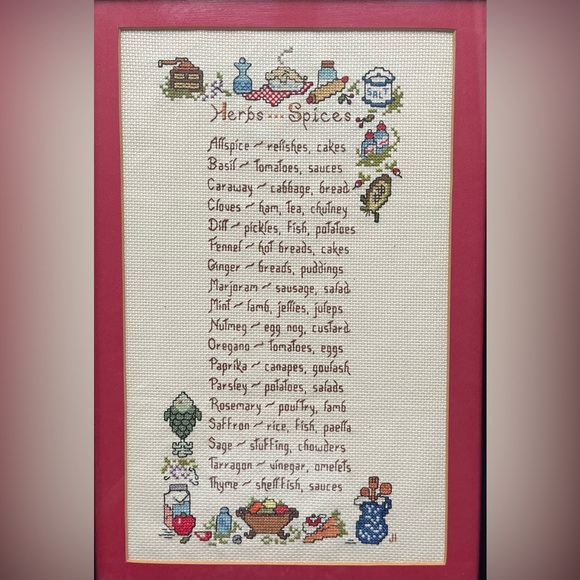 SALT
Herbs ... Spices
Allspice ~ relishes, cakes
Basil ~ tomatoes, sauces
Caraway ~ cabbage, bread
Cloves ~ ham, tea, chutney
Dill ~ pickles, fish, potatoes
Fennel ~ hot breads, cakes
Ginger ~ breads, puddings
Marjoram ~ sausage, salad
Mint ~ lamb, jellies, juleps
Nutmeg ~ egg nog, custard
Oregano ~ tomatoes, eggs
Paprika ~ canapes, goulash
Parsley ~ potatoes, salads
Rosemary ~ poultry, lamb
Saffron ~ rice, fish, paella
Sage ~ stuffing, chowders
Tarragon ~ vinegar, omelets
Thyme ~ shellfish, sauces